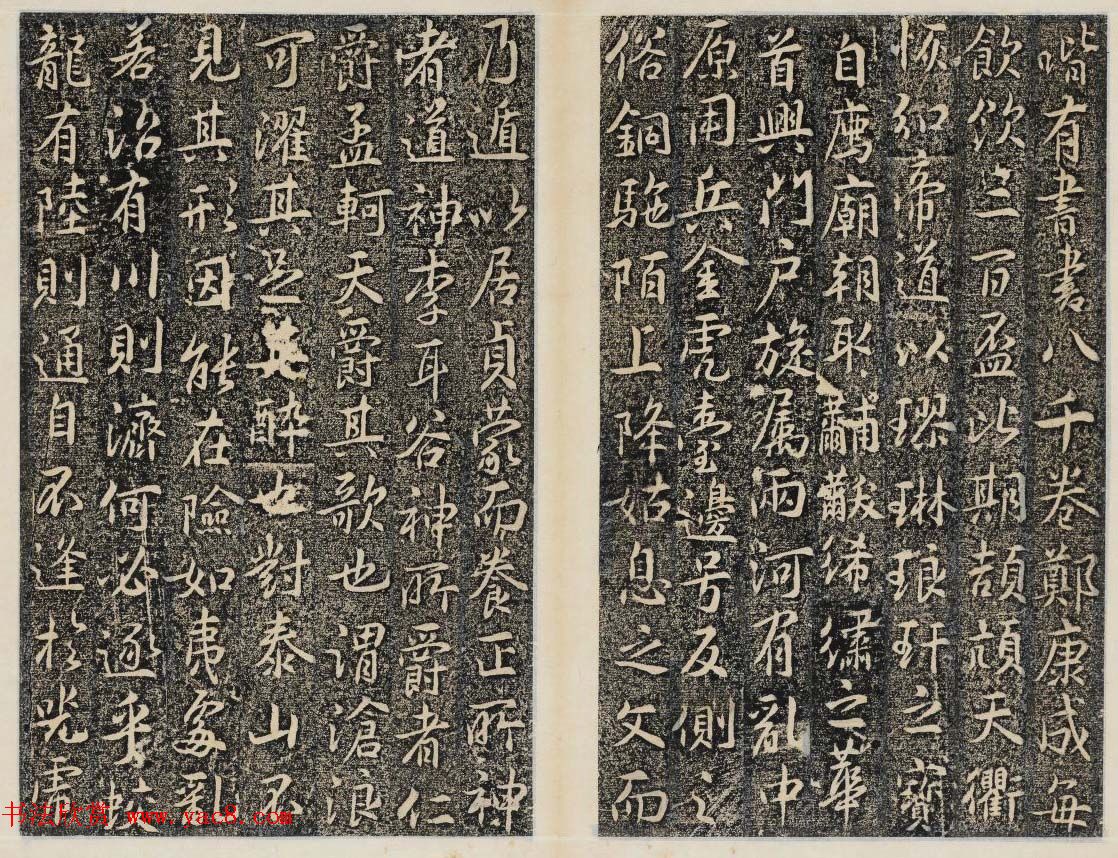 嗜有書書八千卷鄭康成每
飲飲三百盃此期頡頏天衢
恢弘帝道以璆琳琅玕之寶
自薦廟朝取黼黻絺繡之華
首興門户旋属兩河有亂中
原用兵金虎臺邊号反側之
俗銅駞陌上降姑息之文而
乃遁以居貞蒙而養正所神
者道神李耳谷神所爵者仁
爵孟軻天爵其歌也謂滄浪
可濯其足其醉也對泰山不
見其形因能在險如夷處乱
若治有川則濟何必乎蛟
龍有陸則通自不逢於兕虎
书法欣赏 www.yac8.com